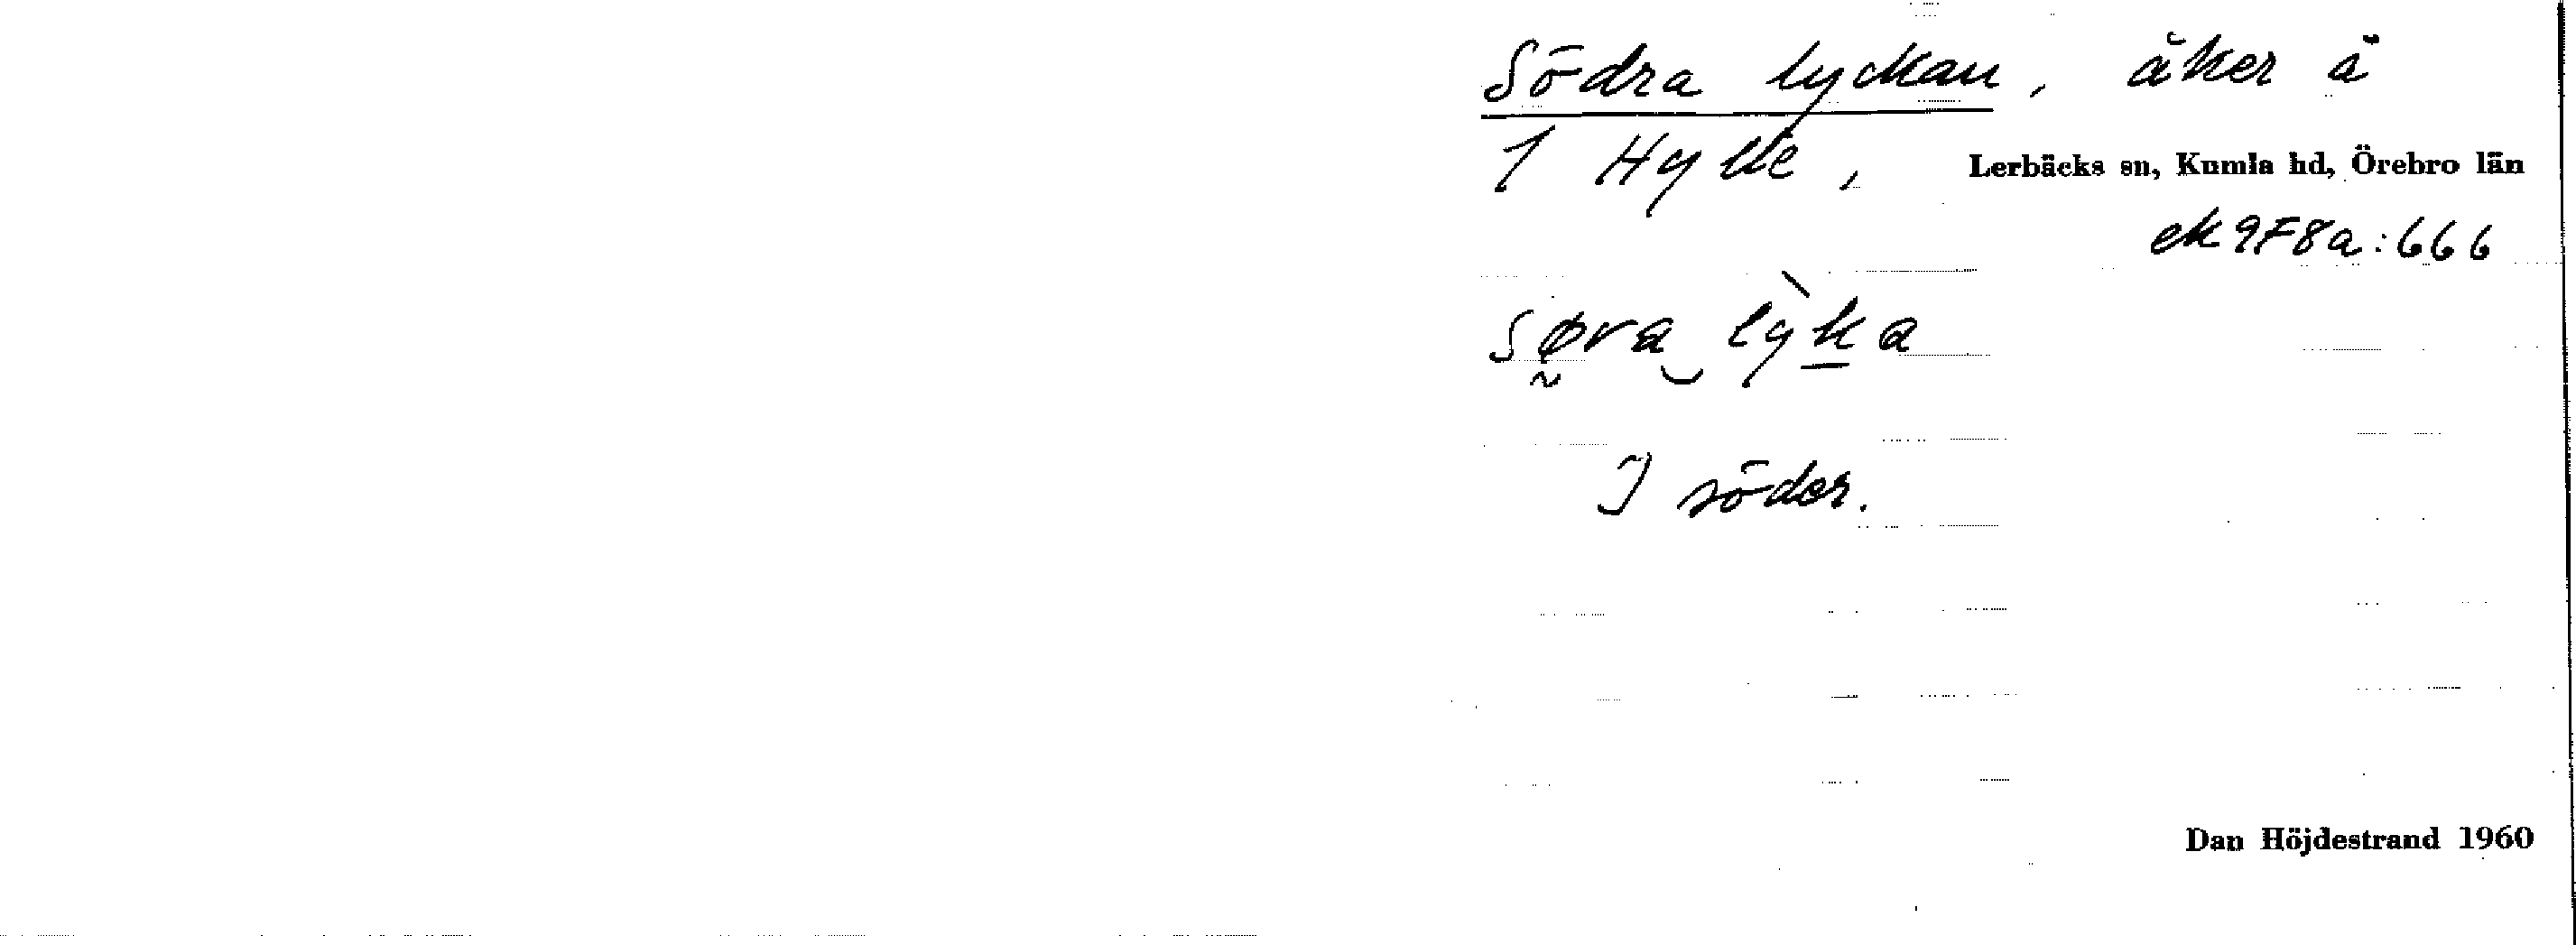 Södra lyckan, åker å
1 Hylle, Lerbäcks sn, Kumla hd, Örebro län
ek 9F8a:666
søra lỳka
I söder.
Dan Höjdestrand 1960